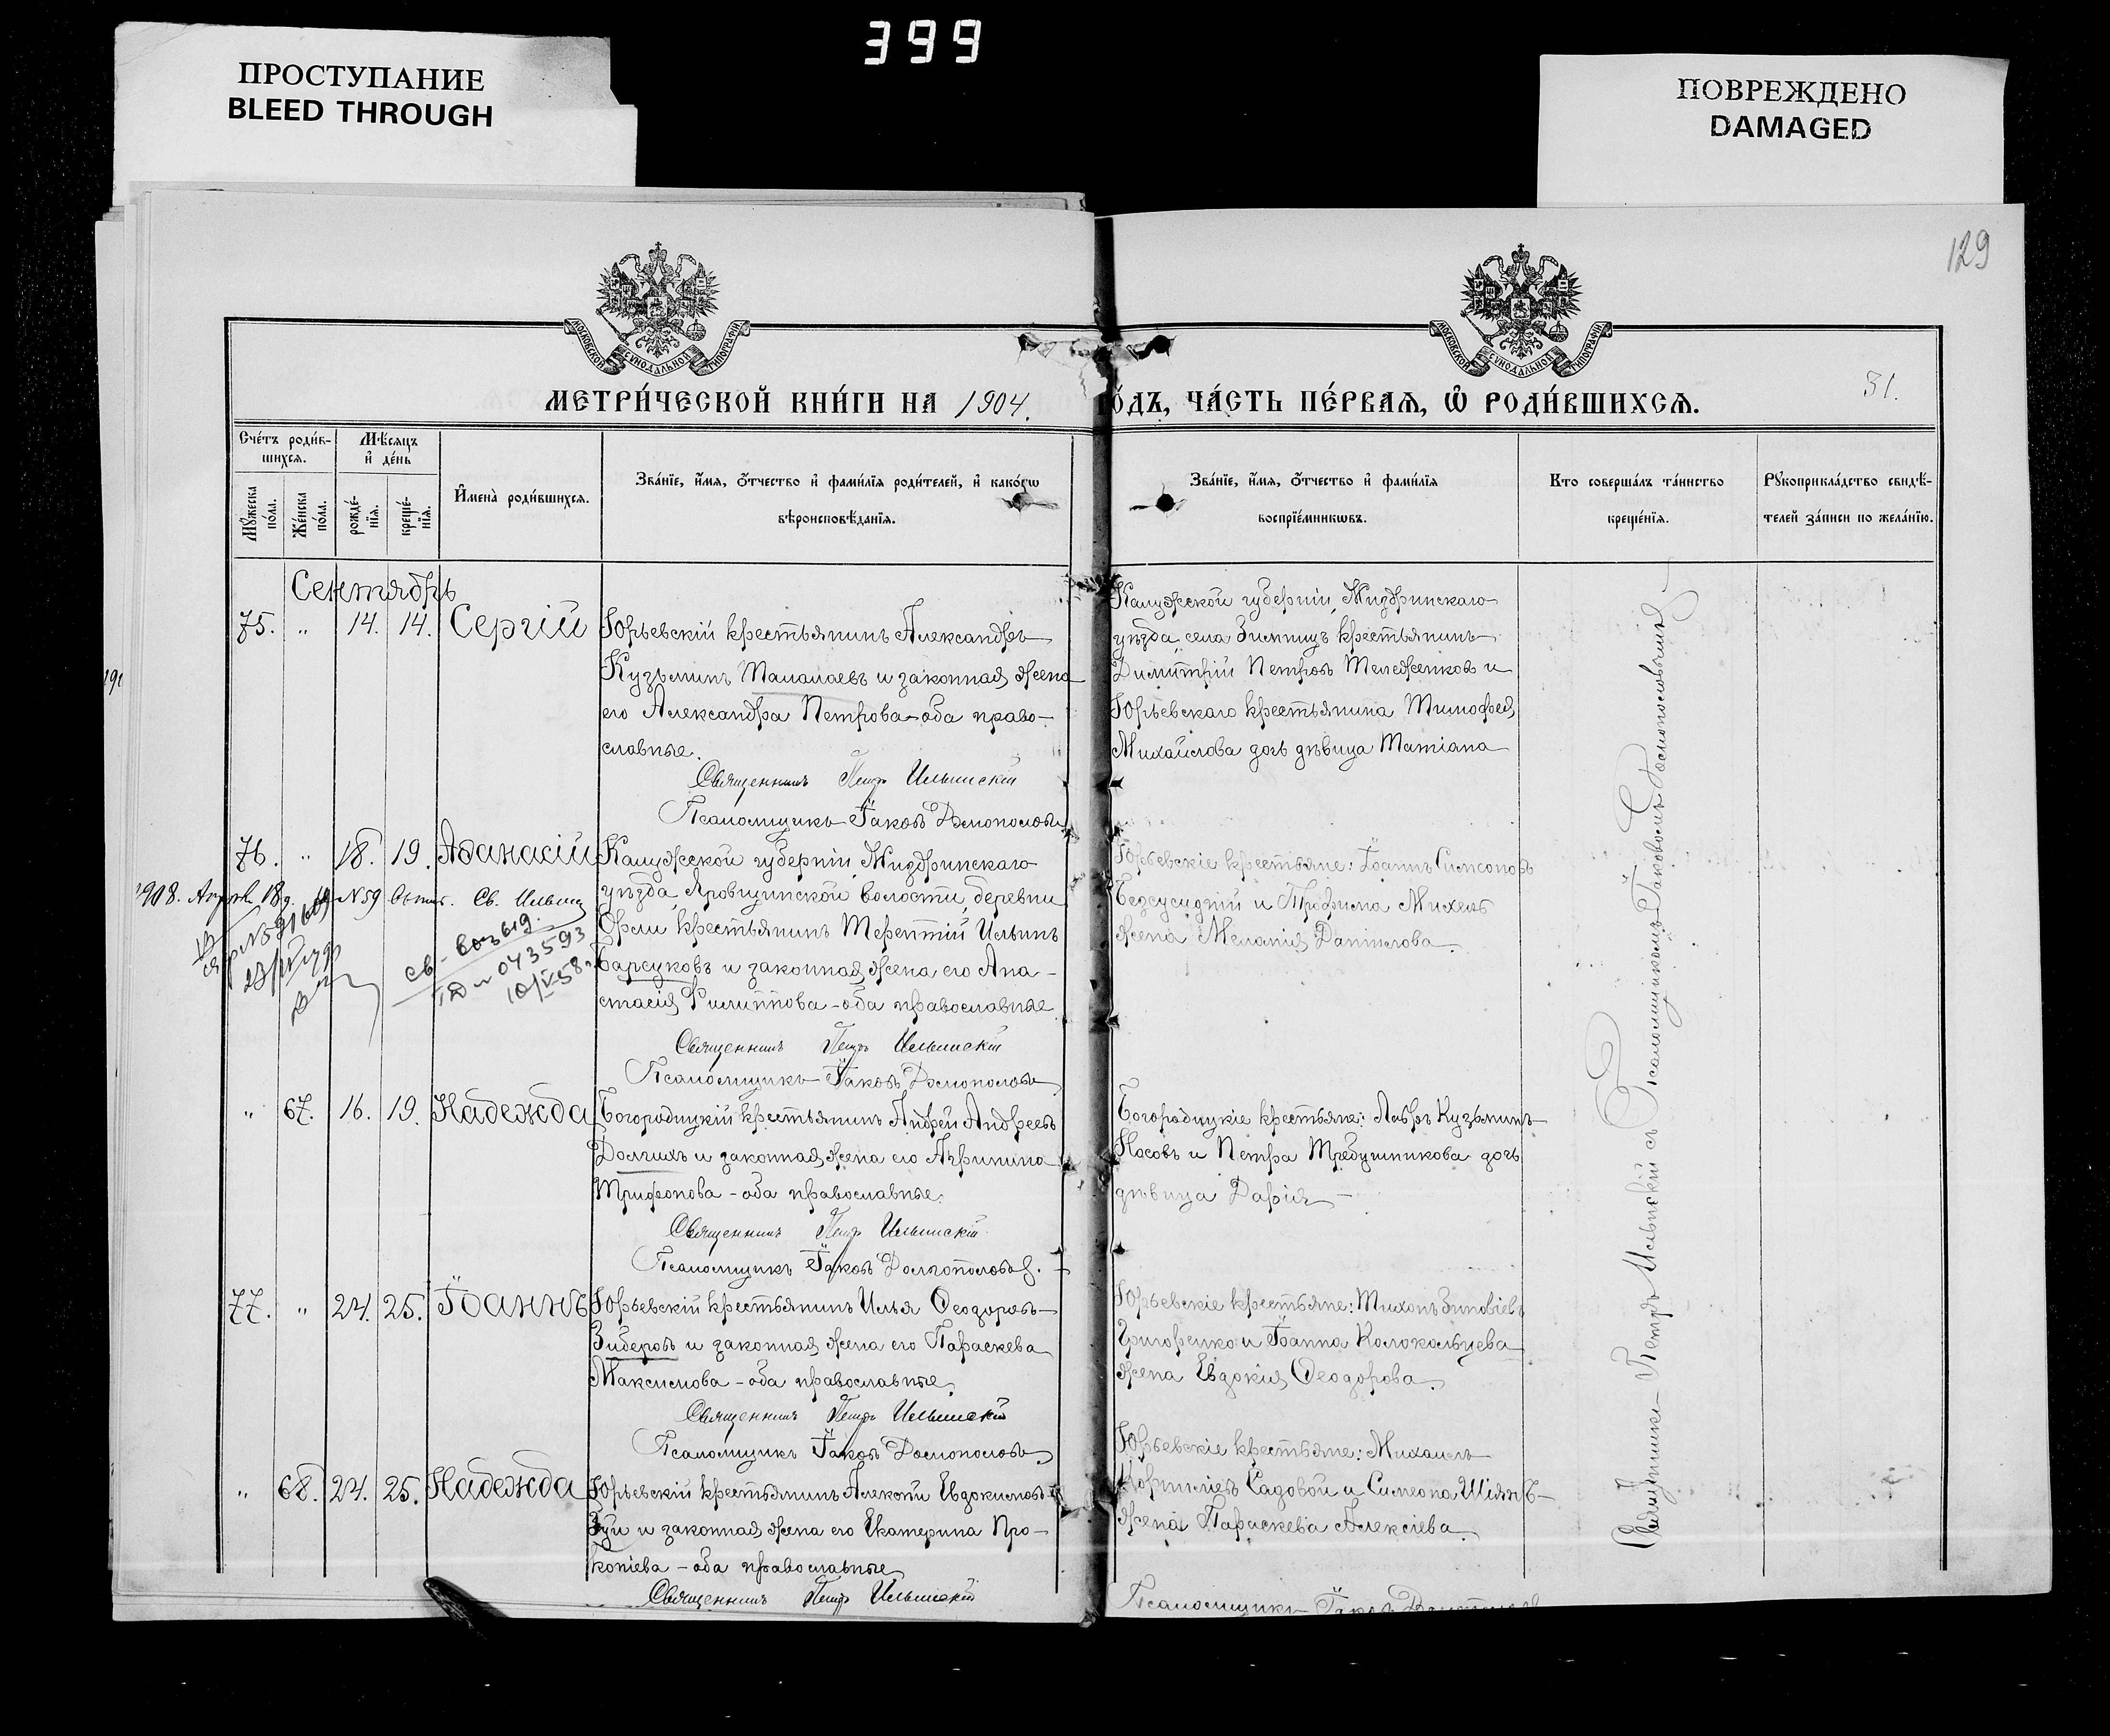 399
ПРОСТУПАНИЕ
BLEED THROUGH
ПОВРЕЖДЕНО
DAMAGED
129
МОСКОВСКОЙ СУНОДАЛЬНОЙ ТИПОГРАФІИ
МОСКОВСКОЙ СУНОДАЛЬНОЙ ТИПОГРАФІИ
МЕТРИ́ЧЕСКОЙ КНИ́ГИ НА 1904.
О́ДЪ, ЧА́СТЬ ПЕ́РВАѦ, Ѡ РОДИ́ВШИХСѦ.
31.
Счéтъ роди́в-
шихсѧ.
Мѣ́сѧцъ
и҆ дéнь
Мꙋ́жеска
по́ла.
Жéнска
по́ла.
рождé-
нїѧ.
крещé-
нїѧ.
И҆менà роди́вшихсѧ.
Звáнїе, и҆́мѧ, ѻ҆́тчество и҆ фами́лїѧ роди́телей, и҆ како́гѡ
вѣроисповѣ́данїѧ.
Звáнїе, и҆́мѧ, ѻ҆́тчество и҆ фами́лїѧ
воспрїéмникѡвъ.
Кто совершáлъ тáинство
крещéнїѧ.
Рꙋкоприклáдство свидѣ́-
телей зáписи по желáнїю.
Сентябрь
75. „ 14. 14. Сергій
Юрьевскій крестьянинъ Александръ
Кузьминъ Малалаевъ и законная жена
его Александра Петрова – оба право-
славные.
Священникъ Петръ Ильинскій
Псаломщикъ Іаковъ Домополовъ
Калужской губерніи, Жиздринскаго
уѣзда, села Зимницъ крестьянинъ
Димитрій Петровъ Тележенков и
Юрьевскаго крестьянина Тимофея
Михайлова дочь дѣвица Татіана
76. „ 18. 19. Аѳанасій
Калужской губерніи, Жиздринскаго
уѣзда, Яровщинской волости, деревни
Орли крестьянинъ Терентій Ильинъ
Барсуковъ и законная жена его Ана-
стасія Филиппова – оба православные
Священникъ Петръ Ильинскій
Псаломщикъ Іаковъ Домополовъ
Юрьевскіе крестьяне: Іоаннъ Симеоновъ
и Трофима
жена Меланія Даніилова.
св-
10/V-58
„ 67. 16. 19. Надежда
Богородицкій крестьянинъ Андрей Андреевъ
Долгихъ и законная жена его Агрипина
Трифонова – оба православные.
Священникъ Петръ Ильинскій
Псаломщикъ Іаковъ
Богородицкіе крестьяне: Лавръ Кузьминъ
Носовъ и Петра Требушникова дочь
дѣвица Дарія –
77. „ 24. 25. Іоаннъ
Юрьевскій крестьянинъ Илья Ѳеодоровъ
Зиберовъ и законная жена его Параскева
Максимова – оба православные.
Священникъ Петръ Ильинскій
Псаломщикъ Іаковъ
Юрьевскіе крестьяне: Тихонъ Зиновіевъ
Григоренко и Іоанна Колокольцева
жена Евдокія Ѳеодорова.
„ 68. 24. 25. Надежда
Юрьевскій крестьянинъ Алексѣй Евдокимовъ
Зуй и законная жена его Екатерина Про-
копіева – оба православные
Священникъ Петръ Ильинскій
Юрьевскіе крестьяне: Михаилъ
Корниліевъ Садовой и Симеона
жена Параскева Алексіева.
Псаломщикъ Іаковъ
Священникъ Петръ Ильинскій съ Псаломщикомъ Іаковомъ